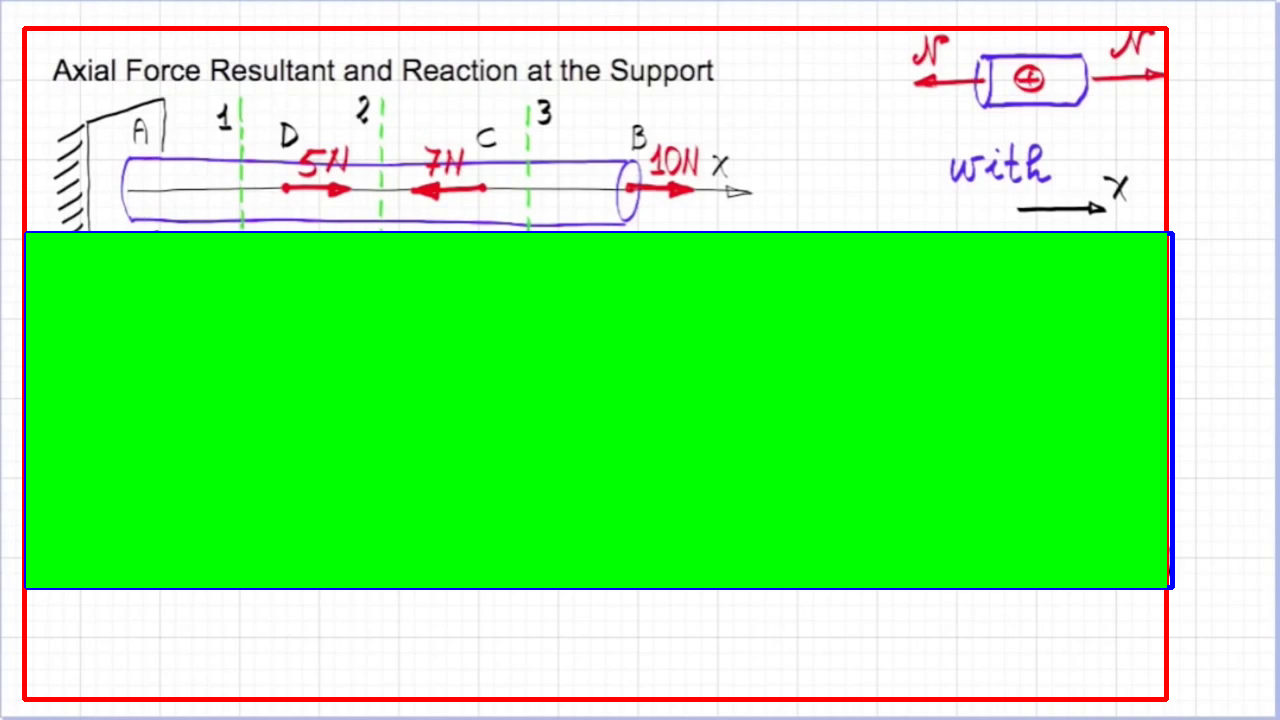 Axial Force Resultant and Reaction at the Support
N N
1 2 3
A D C B
5N 7N 10N X
with
X